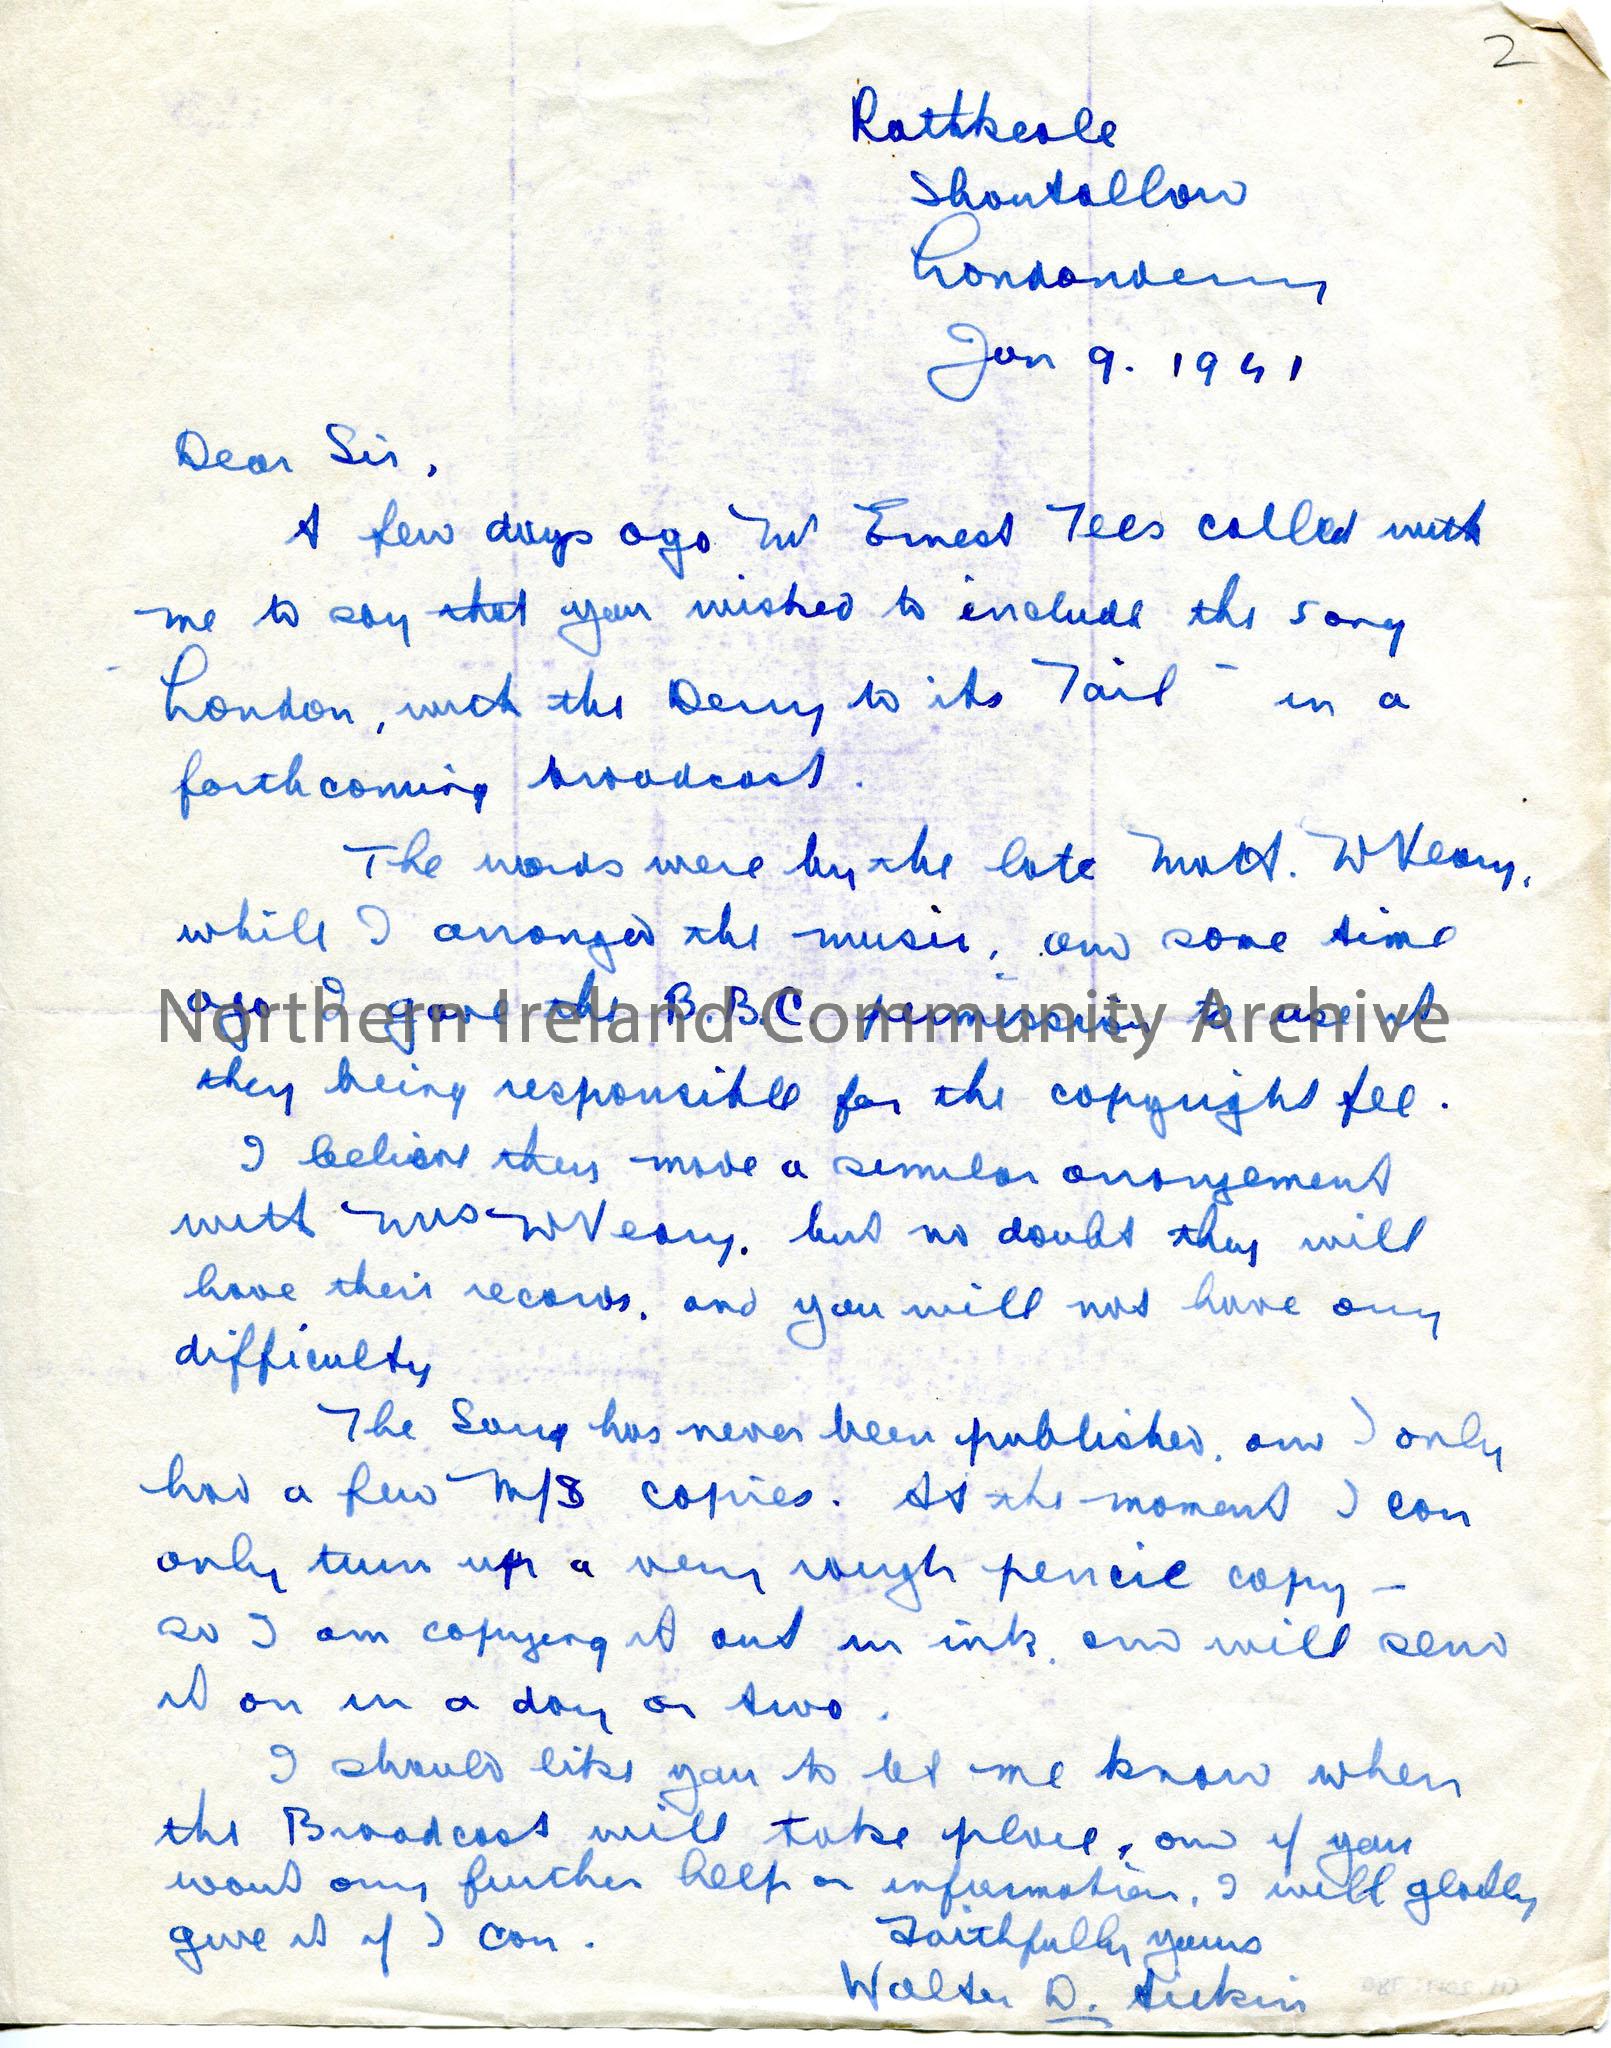 2
Rathkeale
Shantallow
Londonderry
Jan 9. 1941
Dear Sir,
A few days ago Mr Ernest Tees called with
me to say that you wished to include the song
London, with the Derry to its Tail" in a
forthcoming broadcast.
The words were by the late Matt.
while I arranged the music, and some time
ago I gave the B.B.C permission to use it
they being responsible for the copyright fee.
I believe they made a similar arrangement
with Mrs but no doubt they will
have their records, and you will not have any
difficulty
The Song has never been published, and I only
had a few M/S copies. At the moment I can
only turn up a very rough pencil copy -
so I am copying it out in ink, and will send
it on in a day or two.
I should like you to let me know when
the Broadcast will take place, and if you
want any further help or information, I will gladly
give it if I can.
Faithfully yours
Walter D. Aickin
Northern Ireland Community Archive